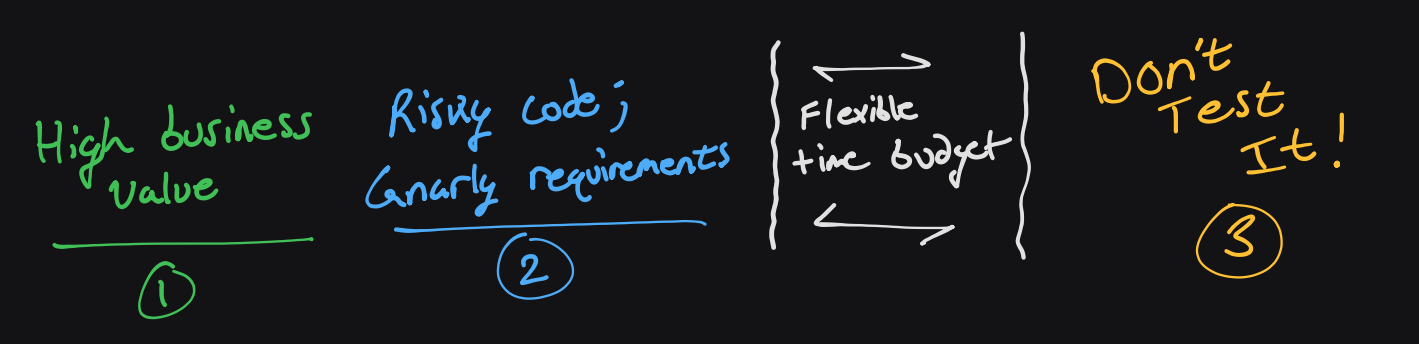 High business
value
1
Risky code;
Gnarly requirements
2
Flexible
time budget
Don't
Test
It!
3